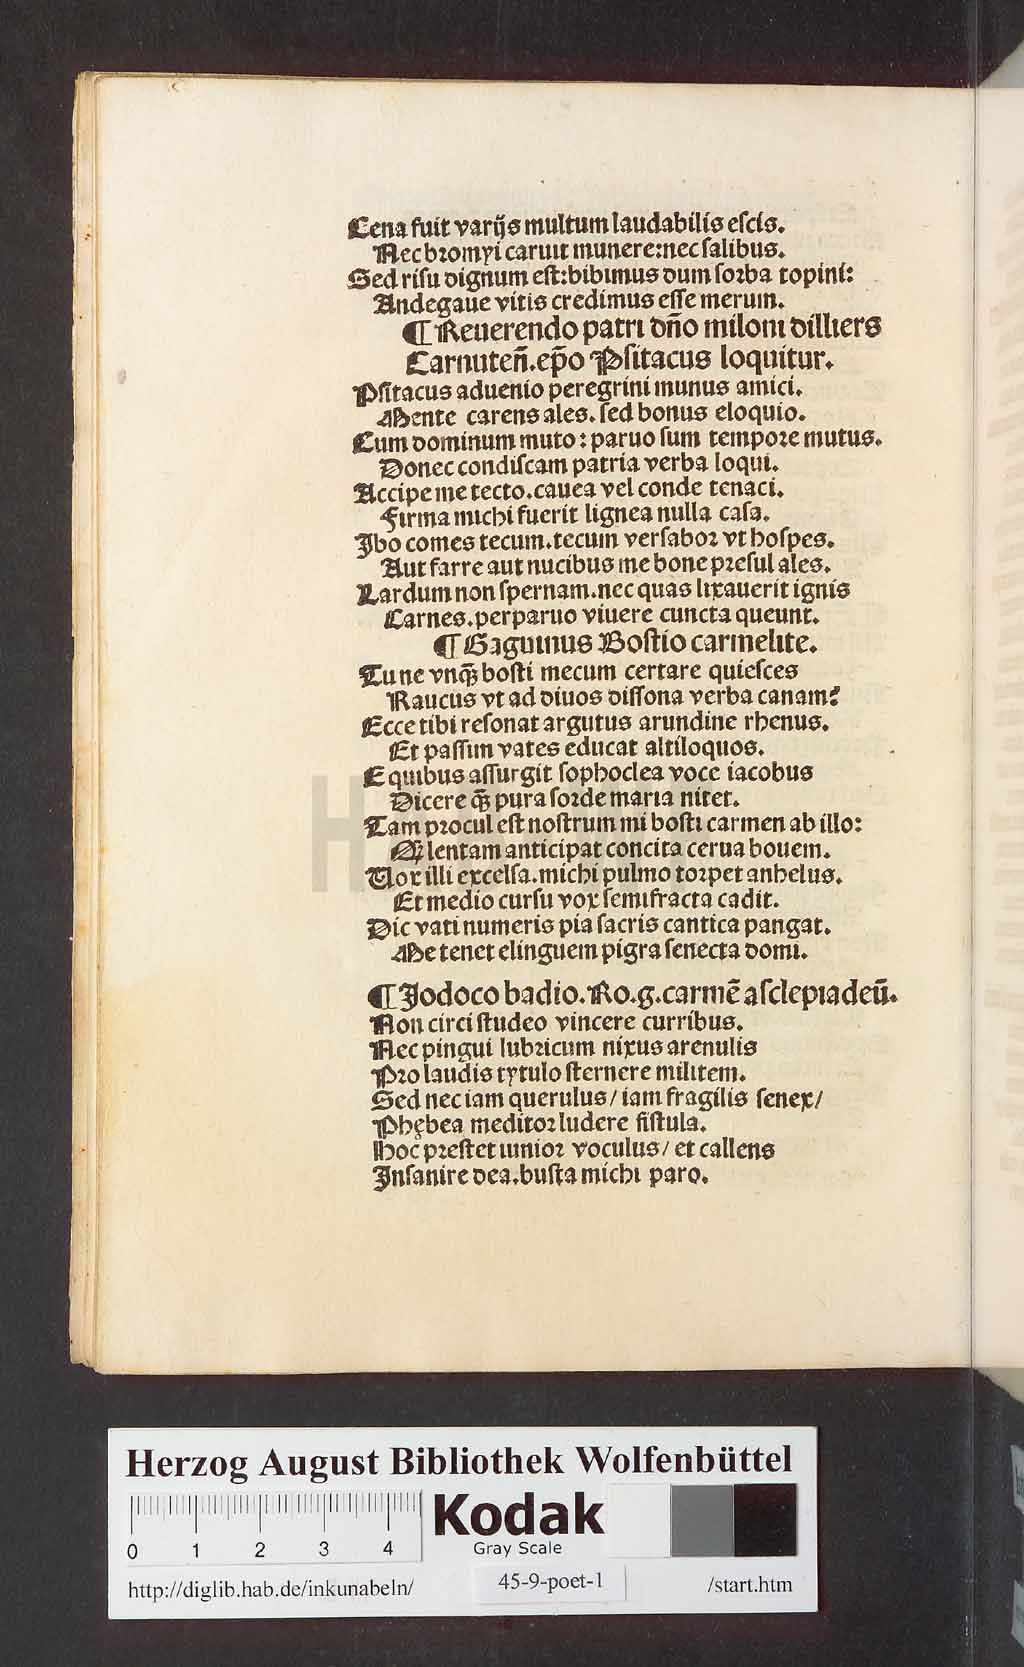 Cena fuit varijs multum laudabilis eſcis.
Nec bromyi caruit munere: nec ſalibus.
Sed riſu dignum eſt: bibimus dum ſorba topini:
Andegaue vitis credimus eſſe merum.
¶ Reuerendo patri dño miloni dilliers
Carnuteñ. ep̃o Pſitacus loquitur.
Pſitacus aduenio peregrini munus amici.
Mente carens ales. ſed bonus eloquio.
Cum dominum muto: paruo ſum tempore mutus.
Donec condiſcam patria verba loqui.
Accipe me tecto. cauea vel conde tenaci.
Firma michi fuerit lignea nulla caſa.
Ibo comes tecum. tecum verſabor vt hoſpes.
Aut farre aut nucibus me bone preſul ales.
Lardum non ſpernam. nec quas lixauerit ignis
Carnes. perparuo viuere cuncta queunt.
¶ Gaguinus Boſtio carmelite.
Tu ne vnq̃ boſti mecum certare quieſces
Raucus vt ad diuos diſſona verba canam?
Ecce tibi reſonat argutus arundine rhenus.
Et paſſim vates educat altiloquos.
E quibus aſſurgit ſophoclea voce iacobus
Dicere q̃ pura ſorde maria nitet.
Tam procul eſt noſtrum mi boſti carmen ab illo:
Q̃ lentam anticipat concita cerua bouem.
Vox illi excelſa. michi pulmo torpet anhelus.
Et medio curſu vox ſemifracta cadit.
Dic vati numeris pia ſacris cantica pangat.
Me tenet elinguem pigra ſenecta domi.
¶ Jodoco badio. Ro. g. carmẽ aſclepiadeũ.
Non circi ſtudeo vincere curribus.
Nec pingui lubricum nixus arenulis
Pro laudis tytulo ſternere militem.
Sed nec iam querulus/ iam fragilis ſenex/
Phębea meditor ludere fiſtula.
Hoc preſtet iunior voculus/ et callens
Inſanire dea. buſta michi paro.
HAB
Herzog August Bibliothek Wolfenbüttel
0 1 2 3 4
Kodak
Gray Scale
http://diglib.hab.de/inkunabeln/
45-9-poet-1
/start.htm